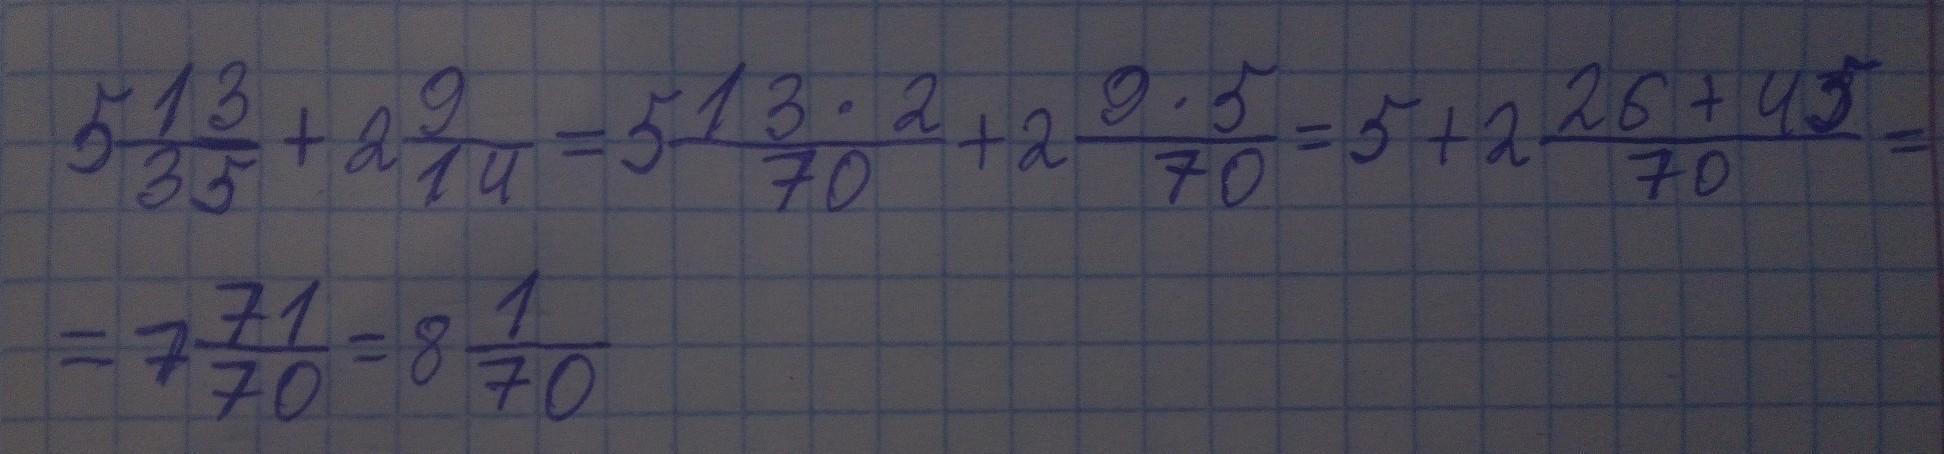 5 13/35 + 2 9/14 = 5 13·2/70 + 2 9·5/70 = 5 + 2 26+45/70 =
= 7 71/70 = 8 1/70